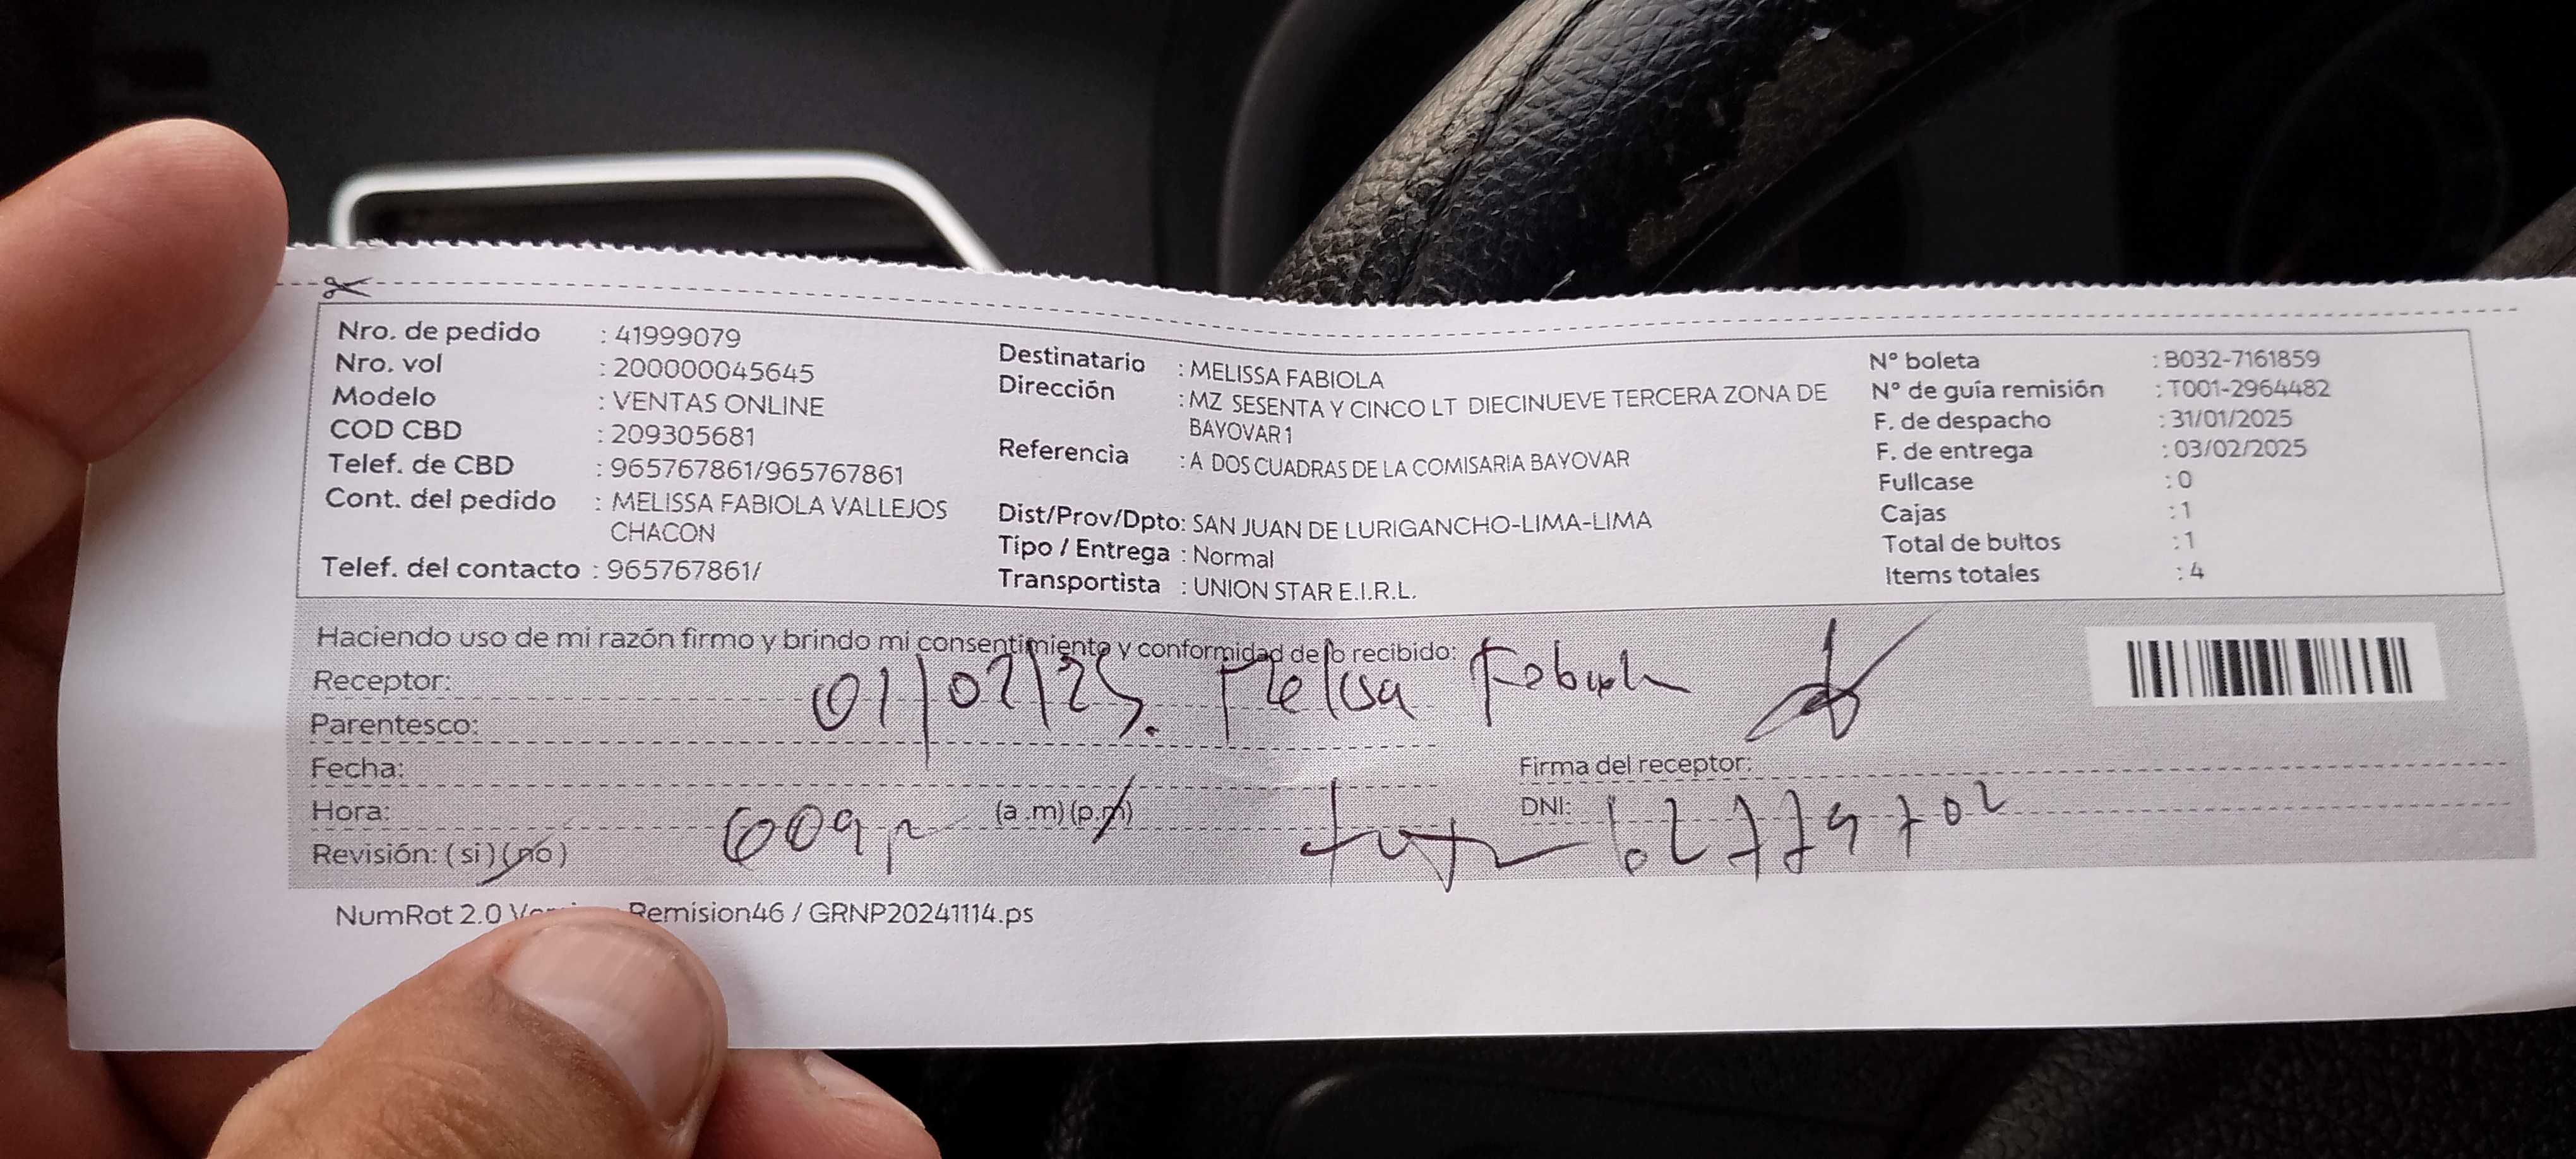 Nro. de pedido : 41999079
Nro. vol : 200000045645
Modelo : VENTAS ONLINE
COD CBD : 209305681
Telef. de CBD : 965767861/965767861
Cont. del pedido : MELISSA FABIOLA VALLEJOS
CHACON
Telef. del contacto : 965767861/
Destinatario : MELISSA FABIOLA
Dirección : MZ SESENTA Y CINCO LT DIECINUEVE TERCERA ZONA DE
BAYOVAR 1
Referencia : A DOS CUADRAS DE LA COMISARIA BAYOVAR
Dist/Prov/Dpto: SAN JUAN DE LURIGANCHO-LIMA-LIMA
Tipo / Entrega : Normal
Transportista : UNION STAR E.I.R.L.
N° boleta : B032-7161859
N° de guía remisión : T001-2964482
F. de despacho : 31/01/2025
F. de entrega : 03/02/2025
Fullcase : 0
Cajas : 1
Total de bultos : 1
Items totales : 4
Haciendo uso de mi razón firmo y brindo mi consentimiento y conformidad de lo recibido:
Receptor: 01/02/25. Melisa
Parentesco:
Fecha:
Firma del receptor:
Hora: 609 p (a.m) (p.m)
DNI:
Revisión: ( si ) ( no )
NumRot 2.0 Remision46 / GRNP20241114.ps